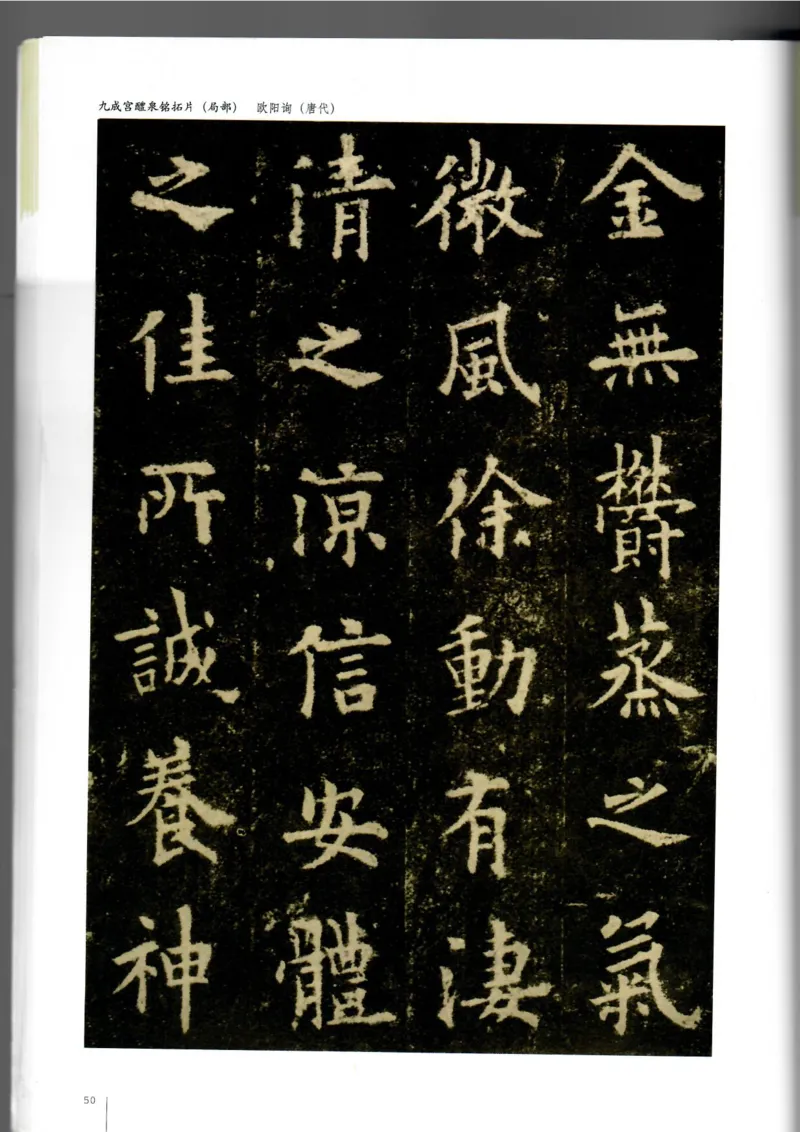 九成宫醴泉铭拓片（局部） 欧阳询（唐代）
金無欝蒸之氣
微風徐動有淒
清之涼信安體
之佳所誠養神
50